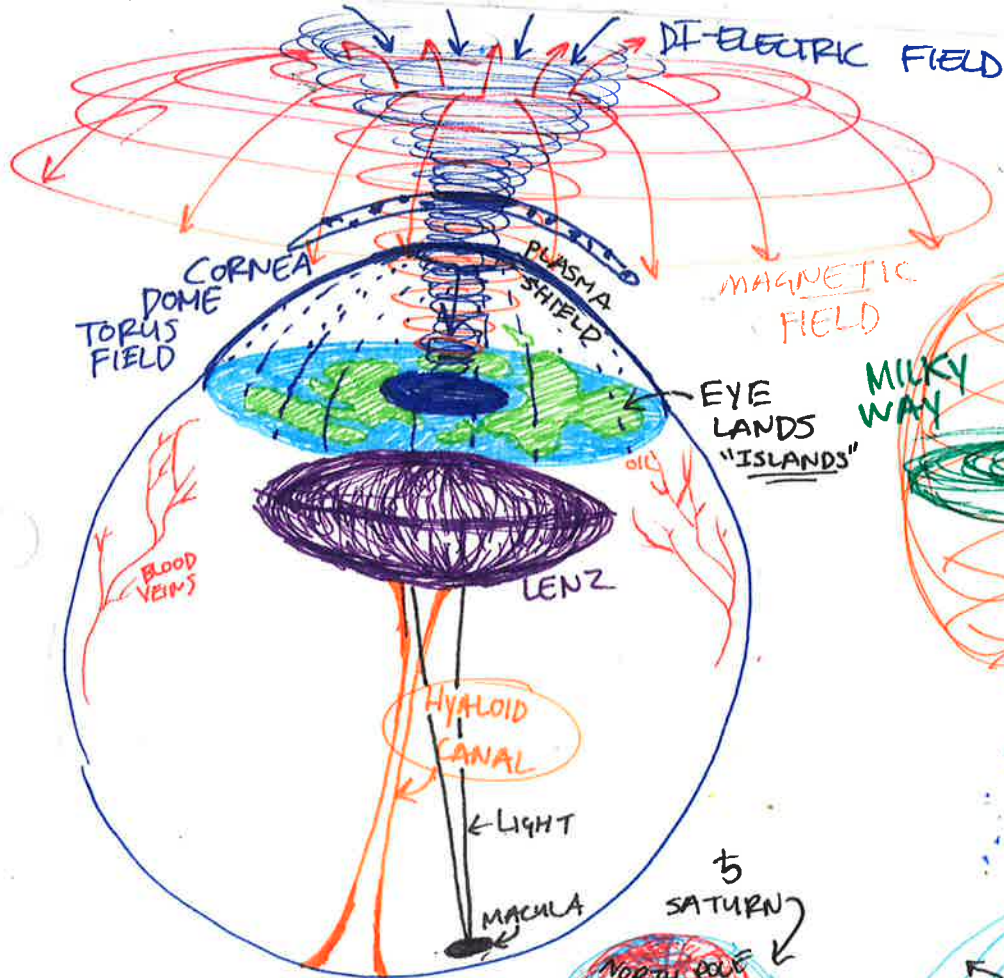 DI-ELECTRIC FIELD
CORNEA
DOME
TORUS
FIELD
PLASMA
SHIELD
MAGNETIC
FIELD
MILKY
WAY
EYE
LANDS
"ISLANDS"
OIL
BLOOD
VEINS
LENZ
HYALOID
CANAL
LIGHT
MACULA
♄
SATURN
NORTH POLE